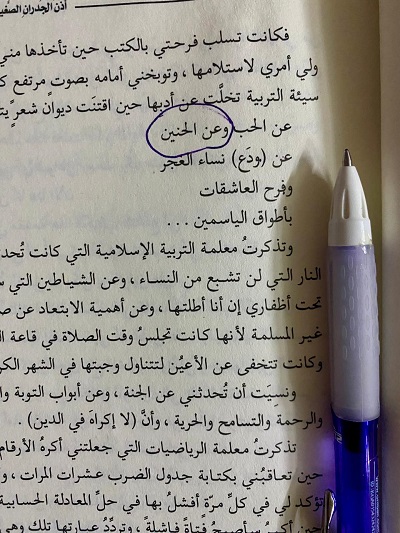 أذن الجدران
فكانت تسلب فرحتي بالكتب حين تأخذها مني
ولي أمري لاستلامها ، وتوبخني أمامه بصوتٍ مرتفع
سيئة التربية تخلَّت عن أدبها حين اقتنَت ديوان شعرٍ
عن الحب وعن الحنين
عن (ودَع) نساء الغجر
وفرح العاشقات
بأطواق الياسمين ...
وتذكرتُ معلمة التربية الإسلامية التي كانت
النار التي لن تشبع من النساء ، وعن الشياطين التي
تحت أظفاري إن أنا أطلتها ، وعن أهمية الابتعاد عن
غير المسلمة لأنها كانت تجلسُ وقت الصلاة في قاعة
وكانت تتخفى عن الأعيُن لتتناول وجبتها في الشهر
ونسِيَت أن تُحدثني عن الجنة ، وعن أبواب التوبة
والرحمة والتسامح والحرية ، وأنَّ (لا إكراهَ في الدين) .
تذكرتُ معلمة الرياضيات التي جعلتني أكرهُ الأرقام
حين تعاقبُني بكتابة جدول الضرب عشرات المرات ،
تؤكد لي في كلِّ مرّة أفشلُ بها في حلِّ المعادلة الحسابية
حين أكبر سأصبحُ فتاةً فاشلةً ، وتردِّدُ عبارتها تلك وهي